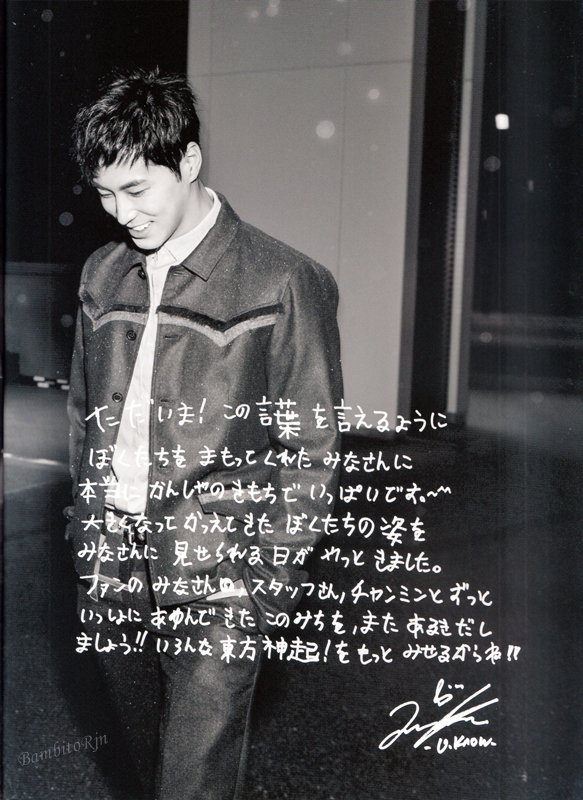 ただいま！この言葉を言えるように
ぼくたちを まもってくれた みなさんに
本当に かんしゃのきもちで いっぱいです。〜
大きくなって かえてきた ぼくたちの 姿を
みなさんに 見せられる 日が やっと きました。
ファンの みなさん、スタッフさん、チャンミンと ずっと
いっしょに あゆんできた このみちを、また あるきだし
ましょう!! いろんな 東方神起！を もっと みせるからね!!
by
- U.KNOW -
BambitoRjn